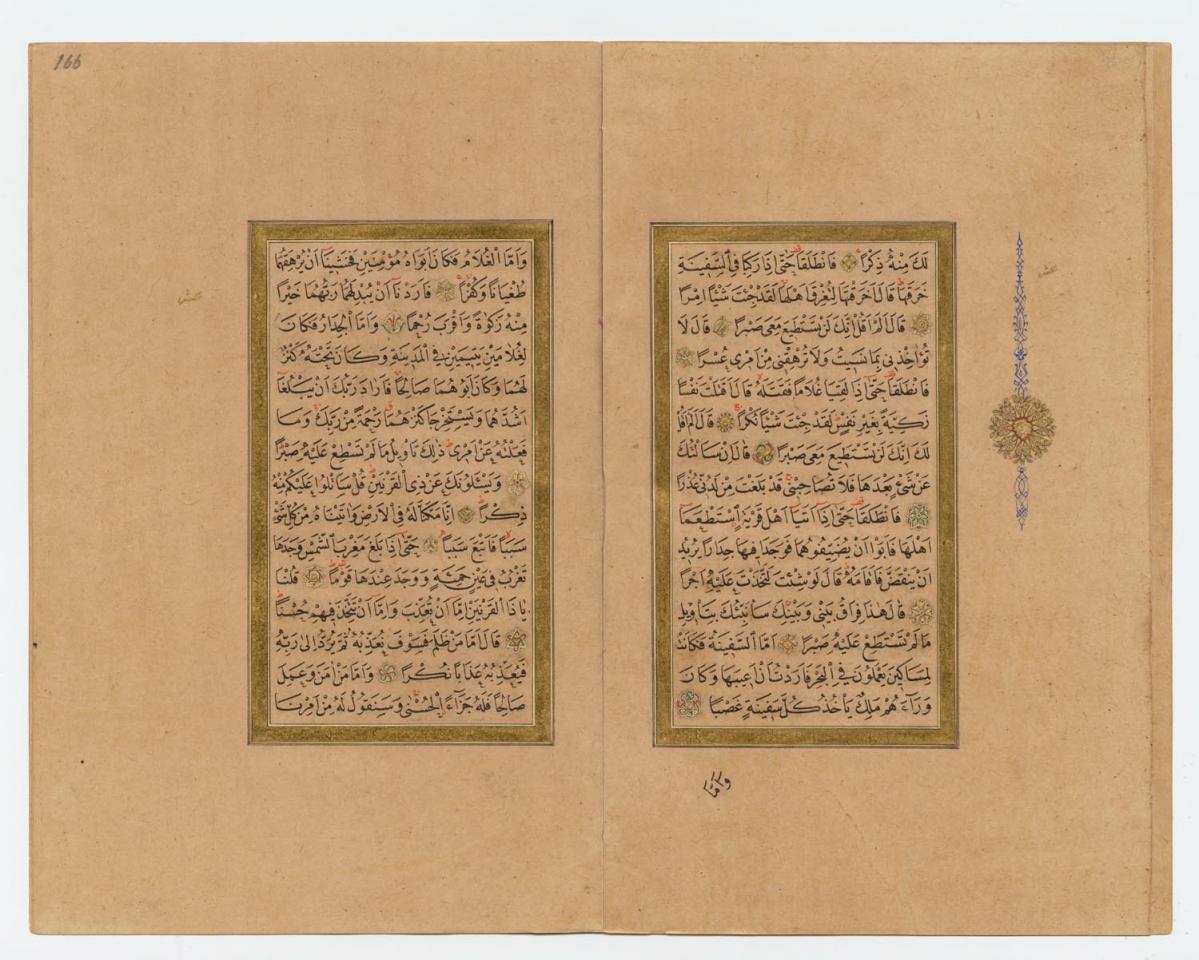 لَكَ مِنْهُ ذِكْرًا فَانْطَلَقَا حَتّٰى اِذَا رَكِبَا فِى السَّفِينَةِ
خَرَقَهَا قَالَ اَخَرَقْتَهَا لِتُغْرِقَ اَهْلَهَا لَقَدْ جِئْتَ شَيْئًا اِمْرًا
قَالَ اَلَمْ اَقُلْ اِنَّكَ لَنْ تَسْتَطِيعَ مَعِىَ صَبْرًا قَالَ لَا
تُؤَاخِذْنِى بِمَا نَسِيتُ وَلَا تُرْهِقْنِى مِنْ اَمْرِى عُسْرًا
فَانْطَلَقَا حَتّٰى اِذَا لَقِيَا غُلَامًا فَقَتَلَهُ قَالَ اَقَتَلْتَ نَفْسًا
زَكِيَّةً بِغَيْرِ نَفْسٍ لَقَدْ جِئْتَ شَيْئًا نُكْرًا قَالَ اَلَمْ اَقُلْ
لَكَ اِنَّكَ لَنْ تَسْتَطِيعَ مَعِىَ صَبْرًا قَالَ اِنْ سَاَلْتُكَ
عَنْ شَىْءٍ بَعْدَهَا فَلَا تُصَاحِبْنِى قَدْ بَلَغْتَ مِنْ لَدُنِّى عُذْرًا
فَانْطَلَقَا حَتّٰى اِذَا اَتَيَا اَهْلَ قَرْيَةٍ اسْتَطْعَمَا
اَهْلَهَا فَاَبَوْا اَنْ يُضَيِّفُوهُمَا فَوَجَدَا فِيهَا جِدَارًا يُرِيدُ
اَنْ يَنْقَضَّ فَاَقَامَهُ قَالَ لَوْ شِئْتَ لَتَّخَذْتَ عَلَيْهِ اَجْرًا
قَالَ هٰذَا فِرَاقُ بَيْنِى وَبَيْنِكَ سَاُنَبِّئُكَ بِتَاْوِيلِ
مَا لَمْ تَسْتَطِعْ عَلَيْهِ صَبْرًا اَمَّا السَّفِينَةُ فَكَانَتْ
لِمَسَاكِينَ يَعْمَلُونَ فِى الْبَحْرِ فَاَرَدْتُ اَنْ اَعِيبَهَا وَكَانَ
وَرَاءَهُمْ مَلِكٌ يَأْخُذُ كُلَّ سَفِينَةٍ غَصْبًا
وَاَمَّا
عشر
166
وَاَمَّا الْغُلَامُ فَكَانَ اَبَوَاهُ مُؤْمِنَيْنِ فَخَشِينَا اَنْ يُرْهِقَهُمَا
طُغْيَانًا وَكُفْرًا فَاَرَدْنَا اَنْ يُبْدِلَهُمَا رَبُّهُمَا خَيْرًا
مِنْهُ زَكٰوةً وَاَقْرَبَ رُحْمًا وَاَمَّا الْجِدَارُ فَكَانَ
لِغُلَامَيْنِ يَتِيمَيْنِ فِى الْمَدِينَةِ وَكَانَ تَحْتَهُ كَنْزٌ
لَهُمَا وَكَانَ اَبُوهُمَا صَالِحًا فَاَرَادَ رَبُّكَ اَنْ يَبْلُغَا
اَشُدَّهُمَا وَيَسْتَخْرِجَا كَنْزَهُمَا رَحْمَةً مِنْ رَبِّكَ وَمَا
فَعَلْتُهُ عَنْ اَمْرِى ذٰلِكَ تَاْوِيلُ مَا لَمْ تَسْطِعْ عَلَيْهِ صَبْرًا
وَيَسْئَلُونَكَ عَنْ ذِى الْقَرْنَيْنِ قُلْ سَاَتْلُوا عَلَيْكُمْ مِنْهُ
ذِكْرًا اِنَّا مَكَّنَّا لَهُ فِى الْاَرْضِ وَاٰتَيْنَاهُ مِنْ كُلِّ شَىْءٍ
سَبَبًا فَاَتْبَعَ سَبَبًا حَتّٰى اِذَا بَلَغَ مَغْرِبَ الشَّمْسِ وَجَدَهَا
تَغْرُبُ فِى عَيْنٍ حَمِئَةٍ وَوَجَدَ عِنْدَهَا قَوْمًا قُلْنَا
يَا ذَا الْقَرْنَيْنِ اِمَّا اَنْ تُعَذِّبَ وَاِمَّا اَنْ تَتَّخِذَ فِيهِمْ حُسْنًا
قَالَ اَمَّا مَنْ ظَلَمَ فَسَوْفَ نُعَذِّبُهُ ثُمَّ يُرَدُّ اِلٰى رَبِّهِ
فَيُعَذِّبُهُ عَذَابًا نُكْرًا وَاَمَّا مَنْ اٰمَنَ وَعَمِلَ
صَالِحًا فَلَهُ جَزَاءً الْحُسْنٰى وَسَنَقُولُ لَهُ مِنْ اَمْرِنَا
عشر